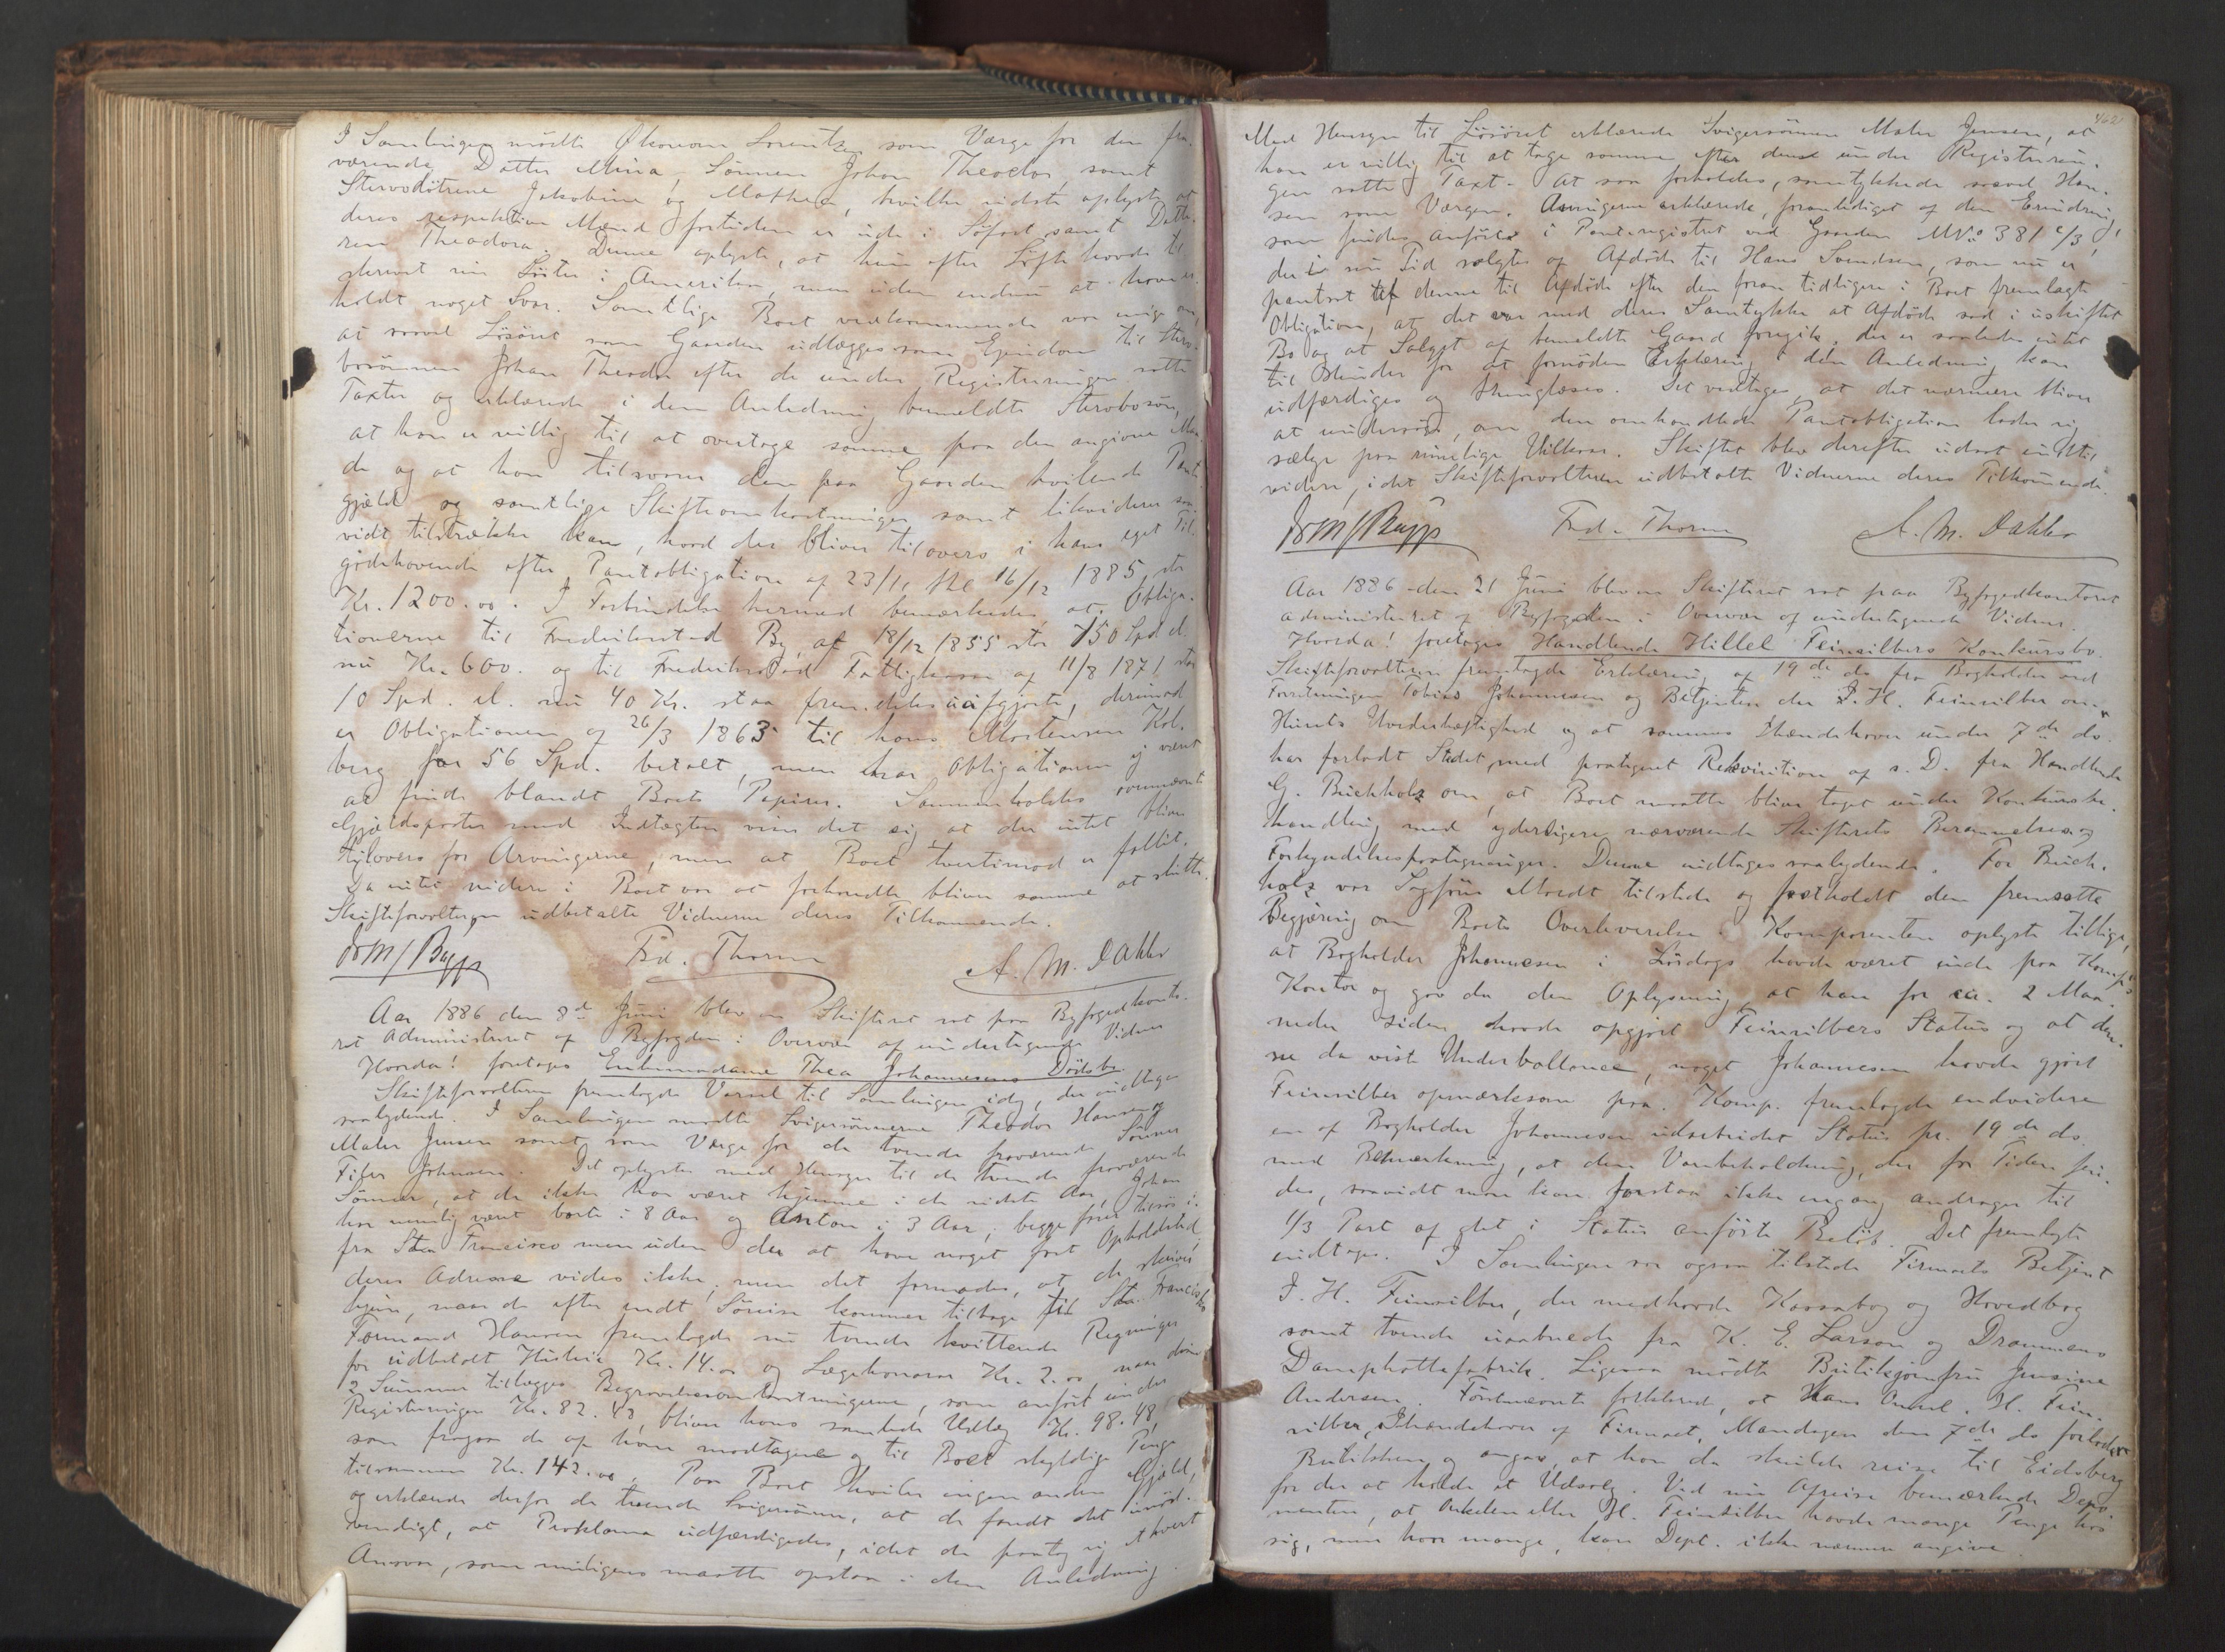 I Samlingen mødte Økonom Lorentzen som Værge for den fra-
værende Datter Mina, Sønnen Johan Theodor, samt
Stervdøtrene Jakobine og Mathea, hvilke sidste oplyste at
deres respektive Mænd fortiden er ude i Søfart samt Datte-
ren Theodora. Denne oplyste, at hun efter Løfte havde til-
skrevet sin Søster i Amerika, men uden endnu at have er-
holdt noget Svar. Samtlige Boet vedkommende var enige om,
at saavel Løsøret som Gaarden udlægges som Ejendom til Sterv-
bosønnen Johan Theodor efter de under Registreringen satte
Taxter og erklærede i den Anledning bemeldte Stervbosøn,
at han er villig til at overtage samme paa den angivne Maa-
de og at han tilsvarer den paa Gaarden hvilende Pante-
gjæld og samtlige Skifteomkostninger samt likviderer saa-
vidt tilstrække kan, hvad der bliver tilovers i hans eget Til-
godehavende efter Pantobligation af 23/11 thl 16/12 1885, stor
Kr. 1200.00. I Forbindelse hermed bemærkedes, at Obliga-
tionerne til Fredrikstad By, af 18/12 1855 stor 150 Spd. el.
nu Kr. 600. og til Fredrikstad Fattigkasse af 11/8 1871 stor
10 Spd. el. nu 40 Kr. staa fremdeles uafgjorte, derimod
er Obligationen af 26/3 1863 til hans Mortensen Kol-
berg for 56 Spd. betalt, men har Obligationen ej været
at finde blandt Boets Papirer. Sammenholdes ovennævnte
Gjældsposter med Indtægten viser det sig at der intet bliver
tilovers for Arvingerne, men at Boet tvertimod er fallit.
Da intet videre i Boet var at forhandle bliver samme at slutte.
Skifteforvalteren udbetalte Vidnerne deres Tilkommende.
Fred. Thorm A. M. Dahler
Aar 1886 den 8de Juni blev en Skifteret sat paa Byfogedkonto-
ret administreret af Byfogden i Overvær af undertegnede Vidner
Hvorda! foretoges Enkemadame Thea Johannesens Dødsbo.
Skifteforvalteren fremlagde Varsel til Samlingen idag, der indtages
saalydende. I Samlingen mødte Svigersønnerne Theodor Hansen og
Maler Jensen samt som Værge for de tvende fraværende Sønner
Filer Johnsen. Det oplystes med Hensyn til de tvende fraværende
Sønner, at de ikke har været hjemme i de sidste Aar, Johan
har nemlig været borte i 8 Aar og Anton i 3 Aar, begge farer tilsøs i
fra San Francisco men uden der at have noget fast Opholdssted,
deres Adresse vides ikke, men det formodes, at de skriver
hjem, naar de efter endt Søreise kommer tilbage til San Francisko
Formand Hansen fremlagde nu tvende kvitterede Regninger
for udbetalt Husleie Kr. 14.00 og Lægehonorar Kr. 2.00, naar disse
2 Summer tillægges Begravelsesomkostningerne, som anført under
Registreringen Kr. 82.48, bliver hans samlede Udlæg Kr. 98.48,
som fragaar de af ham modtagne og til Boet skyldige Penge
tilsammen Kr. 142.00. Paa Boet hviler ingen anden Gjæld,
og erklærede derfor de tvende Svigersønner, at de fandt det unød-
vendigt, at Proklama udfærdigedes, idet de paatog sig ethvert
Ansvar, som muligens maatte opstaa i den Anledning.
462
Med Hensyn til Løsøret erklærede Svigersønnen Maler Jensen, at
han er villig til at tage samme efter denne under Registrerin-
gen satte Taxt. At saa forholdes, samtykkede saavel Han-
sen som Værgen. Arvingerne erklærede, foranlediget af den Erindring,
som findes anført i Panteregistret ved Gaarden MNo 381 c/3,
der i sin Tid solgtes af Afdøde til Hans Svendsen, som nu er
pantsat af denne til Afdøde efter den foran tidligere i Boet fremlagte
Obligation, at det var med deres Samtykke at Afdøde sad i uskiftet
Bo og at Salget af bemeldte Gaard foregik, der er saaledes intet
til Hinder for at fornøden Erklæring i den Anledning kan
udfærdiges og thinglæses. Det vedtages, at det nærmere bliver
at undersøge, om den omhandlede Pantobligation lader sig
sælge paa rimelige Vilkaar. Skiftet blev derefter udsat indtil
videre, idet Skifteforvalteren udbetalte Vidnerne deres Tilkommende.
Fred. Thorm A. M. Dahler
Aar 1886 den 21 Juni blev en Skifteret sat paa Byfogedkontoret
administreret af Byfogden i Overvær af undertegnede Vidner.
Hvorda! foretoges Handlende Hillel Feinsilbers Konkursbo.
Skifteforvalteren fremlagde Erklæring af 19de ds. fra Bogholder ved
Forretningen Tobias Johannesen og Betjenten der I. H. Feinsilber om
Husets Uvederhæftighed og at sammes Ihændehaver under 7de ds.
har forladt Stedet, med paategnet Rekvisition af s. D. fra Handlende
G. Buchholz om, at Boet maatte bliver taget under Konkursbe-
handling med yderligere nærværende Skifterets Berammelses og
Forkyndelsespaategninger. Denne indtages saalydende. For Buch-
holz var Sagfører Mordt tilstede og fastholdt den fremsatte
Begjæring om Boets Overleverelse. Komparenten oplyste tillige,
at Bogholder Johannesen i Lørdags havde været inde paa Komps
Kontor og gav da den Oplysning, at han for ca. 2 Maa-
neder siden havde opgjort Feinsilbers Status og at den-
ne da viste Underballance, noget Johannesen havde gjort
Feinsilber opmærksom paa. Komp. fremlagde endvidere
en af Bogholder Johannesen udskrevet Status pr. 19de ds.
med Bemærkning, at den Varebeholdning, der for Tiden fin-
des, saavidt man kan forstaa ikke engang andrager til
1/3 Part af det i Status anførte Beløb. Det fremlagte
indtages. I Samlingen var ogsaa tilstede Firmaets Betjent
I. H. Feinsilber, der medhavde Kassabog og Hovedbog
samt tvende uaabnede fra K. E. Larsen og Drammens
Damphattefabrik. Ligesaa mødte Butikjomfru Jensine
Andersen. Førstnævnte forklarede, at Hans Onkel, H. Fein-
silber, Ihændehaver af Firmaet, Mandagen den 7de ds forlod
Butikken og angav, at han da skulde reise til Eidsberg
for der at holde et Udsalg. Ved sin Afreise bemærkede Depo-
nenten, at Onkelen eller H. Feinsilber havde mange Penge hos
sig, men hvor mange, kan Dept. ikke nærmere angive.